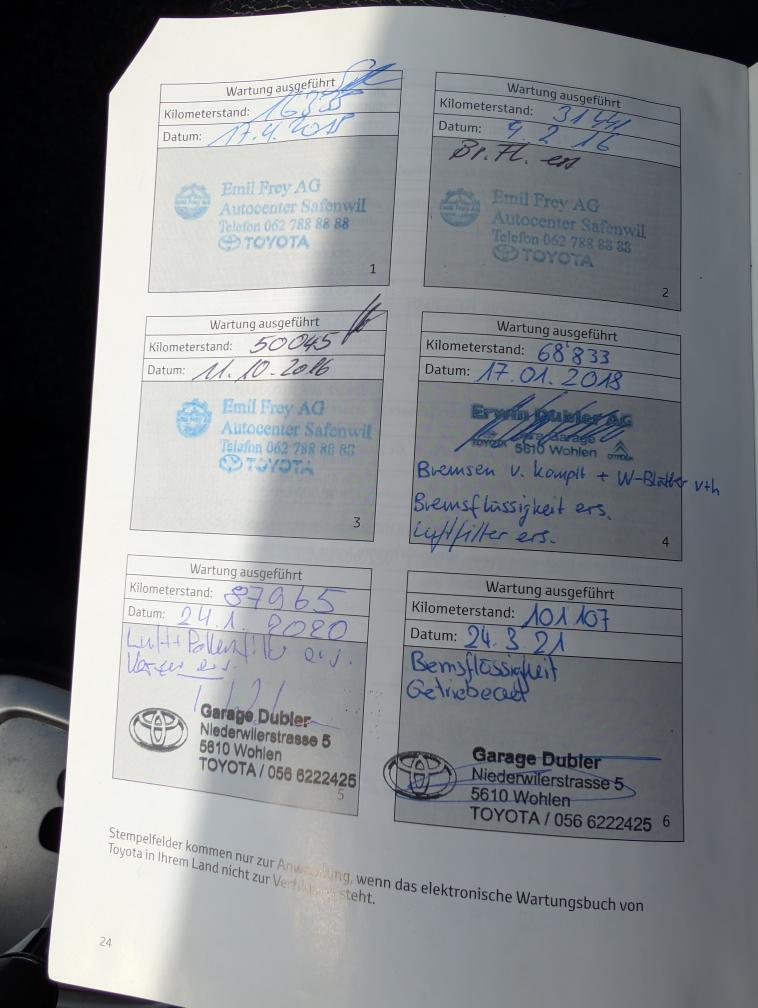 Wartung ausgeführt
Kilometerstand: 16335
Datum: 17.4.2015
Emil Frey AG
Autocenter Safenwil
Telefon 062 788 88 88
TOYOTA
1
Wartung ausgeführt
Kilometerstand: 31441
Datum: 9 2 16
Br. Fl. ers
Emil Frey AG
Autocenter Safenwil
Telefon 062 788 88 88
TOYOTA
2
Wartung ausgeführt
Kilometerstand: 50045
Datum: 11.10.2016
Emil Frey AG
Autocenter Safenwil
Telefon 062 788 88 88
TOYOTA
3
Wartung ausgeführt
Kilometerstand: 68'833
Datum: 17.01.2018
Erwin Dubler AG
Garage
TOYOTA 5610 Wohlen CITROËN
Bremsen v. komplt + W-Blätter v+h
Bremsflüssigkeit ers.
Luftfilter ers.
4
Wartung ausgeführt
Kilometerstand: 87965
Datum: 24.1.2020
Luft+Pollenfilt ers.
ers.
Garage Dubler
Niederwilerstrasse 5
5610 Wohlen
TOYOTA / 056 6222425
5
Wartung ausgeführt
Kilometerstand: 101107
Datum: 24.3.21
Bemsflüssigkeit
Getriebeoel
Garage Dubler
Niederwilerstrasse 5
5610 Wohlen
TOYOTA / 056 6222425
6
Stempelfelder kommen nur zur Anwendung, wenn das elektronische Wartungsbuch von
Toyota in Ihrem Land nicht zur Verfügung steht.
24